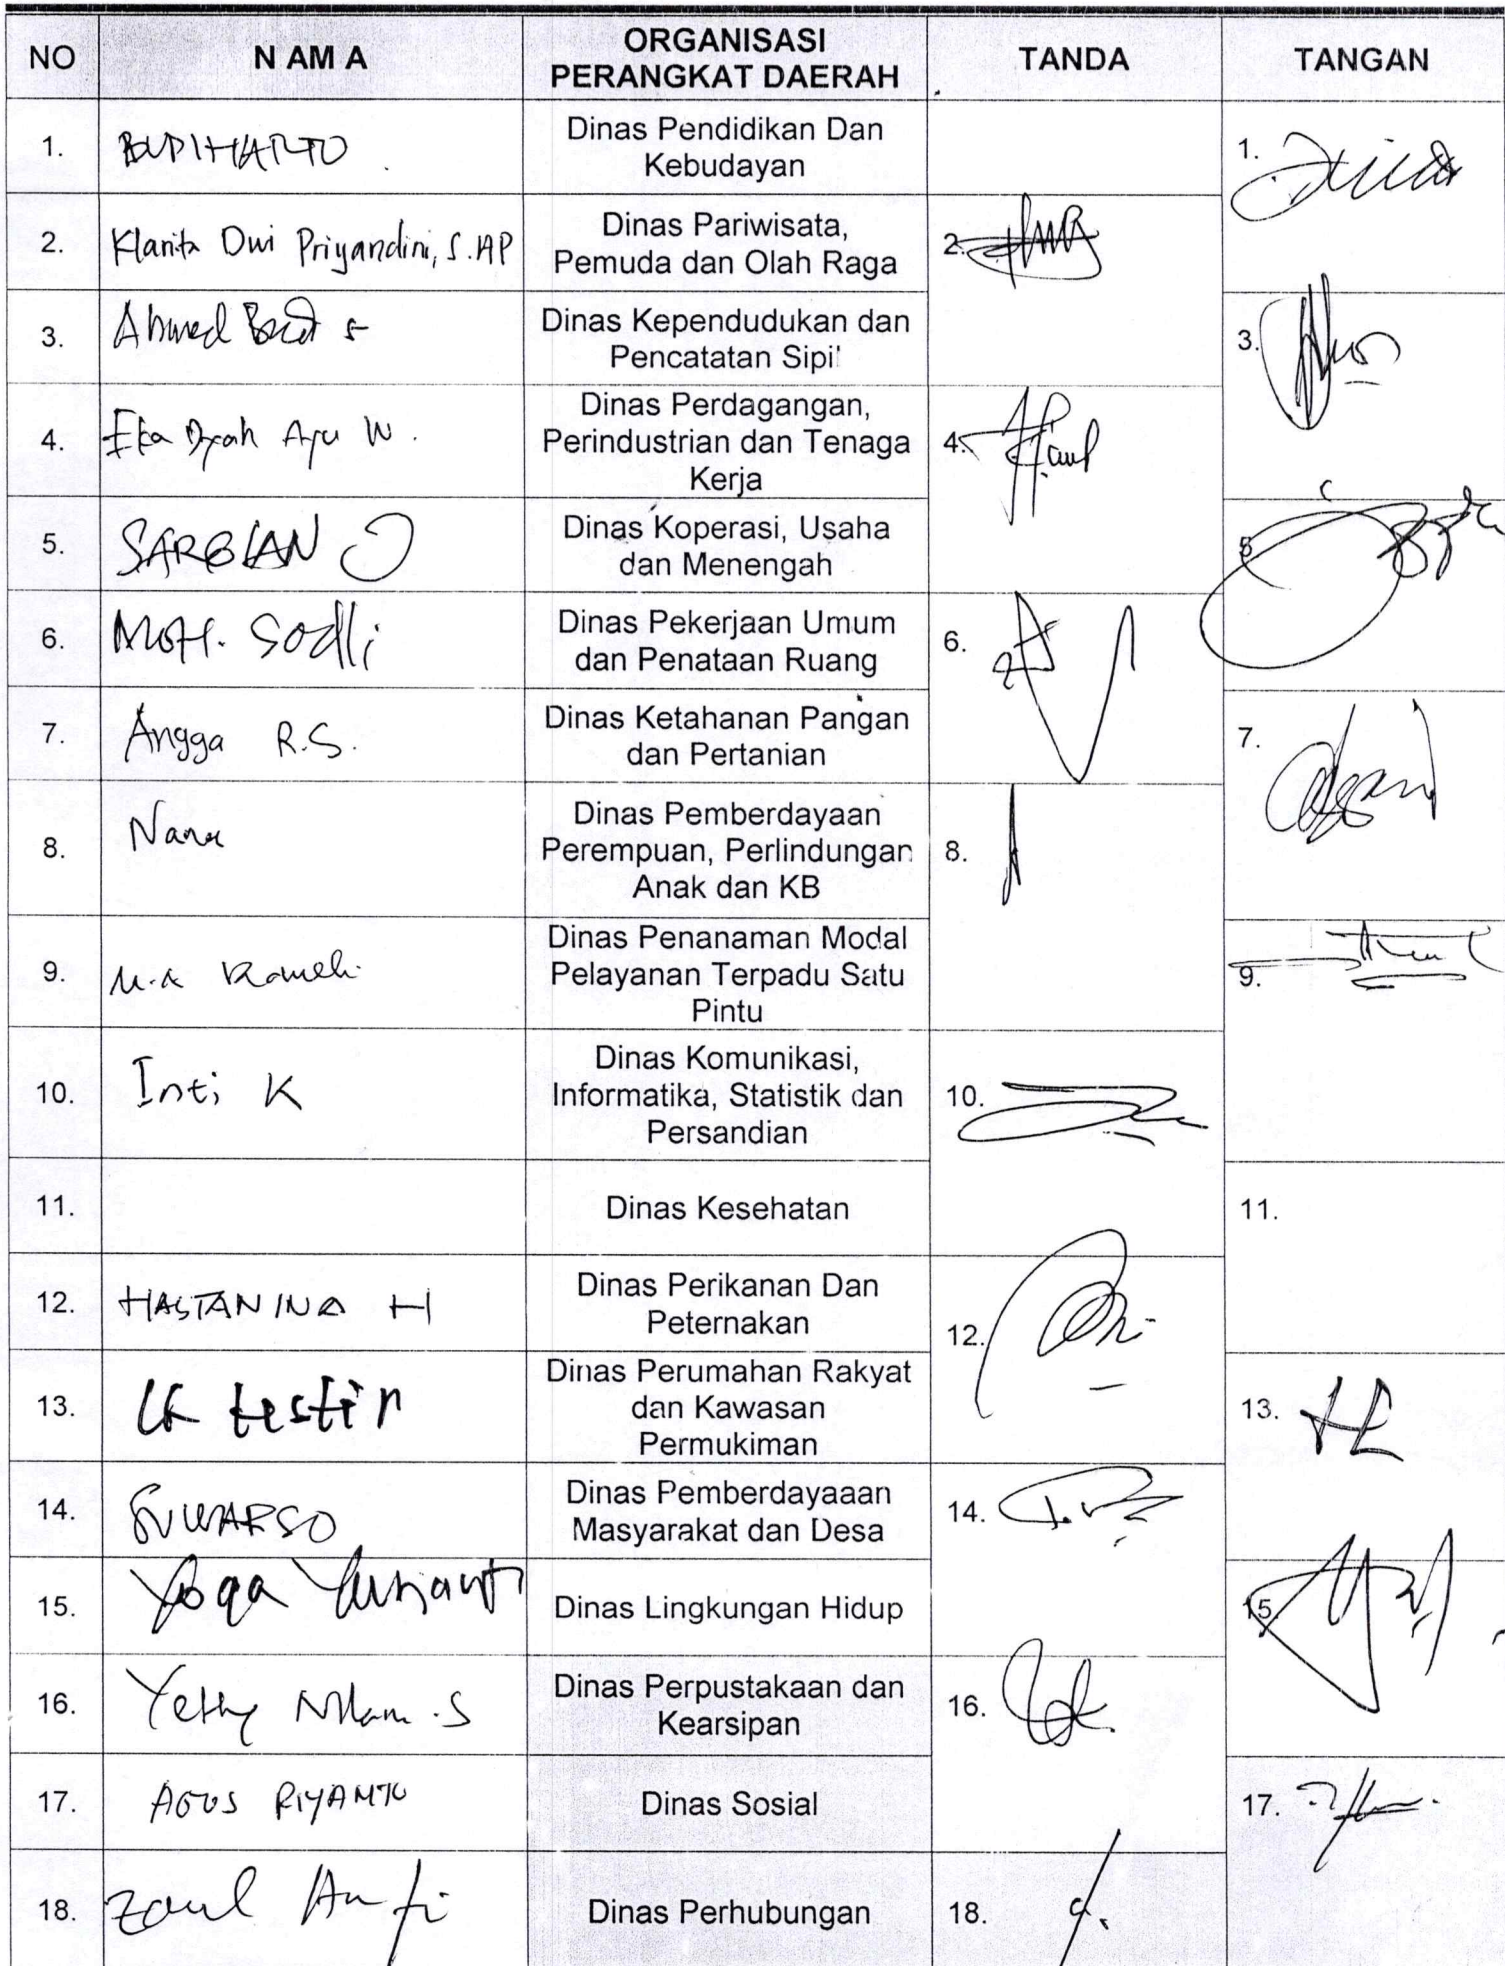 NO
NAMA
ORGANISASI
PERANGKAT DAERAH
TANDA
TANGAN
1.
BUDIHARTO
Dinas Pendidikan Dan
Kebudayan
1.
2.
Klarita Dwi Priyandini, S.AP
Dinas Pariwisata,
Pemuda dan Olah Raga
2.
3.
Ahmed
Dinas Kependudukan dan
Pencatatan Sipil
3.
4.
Eka Dyah Ayu W.
Dinas Perdagangan,
Perindustrian dan Tenaga
Kerja
4.
5.
SARBIAN
Dinas Koperasi, Usaha
dan Menengah
5
6.
MOH. Sodli
Dinas Pekerjaan Umum
dan Penataan Ruang
6.
7.
Angga R.S.
Dinas Ketahanan Pangan
dan Pertanian
7.
8.
Nana
Dinas Pemberdayaan
Perempuan, Perlindungan
Anak dan KB
8.
9.
Dinas Penanaman Modal
Pelayanan Terpadu Satu
Pintu
9.
10.
Inti K
Dinas Komunikasi,
Informatika, Statistik dan
Persandian
10.
11.
Dinas Kesehatan
11.
12.
HASTANINA H
Dinas Perikanan Dan
Peternakan
12.
13.
Dinas Perumahan Rakyat
dan Kawasan
Permukiman
13.
14.
SUWARSO
Dinas Pemberdayaaan
Masyarakat dan Desa
14.
15.
Yoga
Dinas Lingkungan Hidup
15.
16.
Yetty Nilam .S
Dinas Perpustakaan dan
Kearsipan
16.
17.
AGUS RIYANTO
Dinas Sosial
17.
18.
Dinas Perhubungan
18.